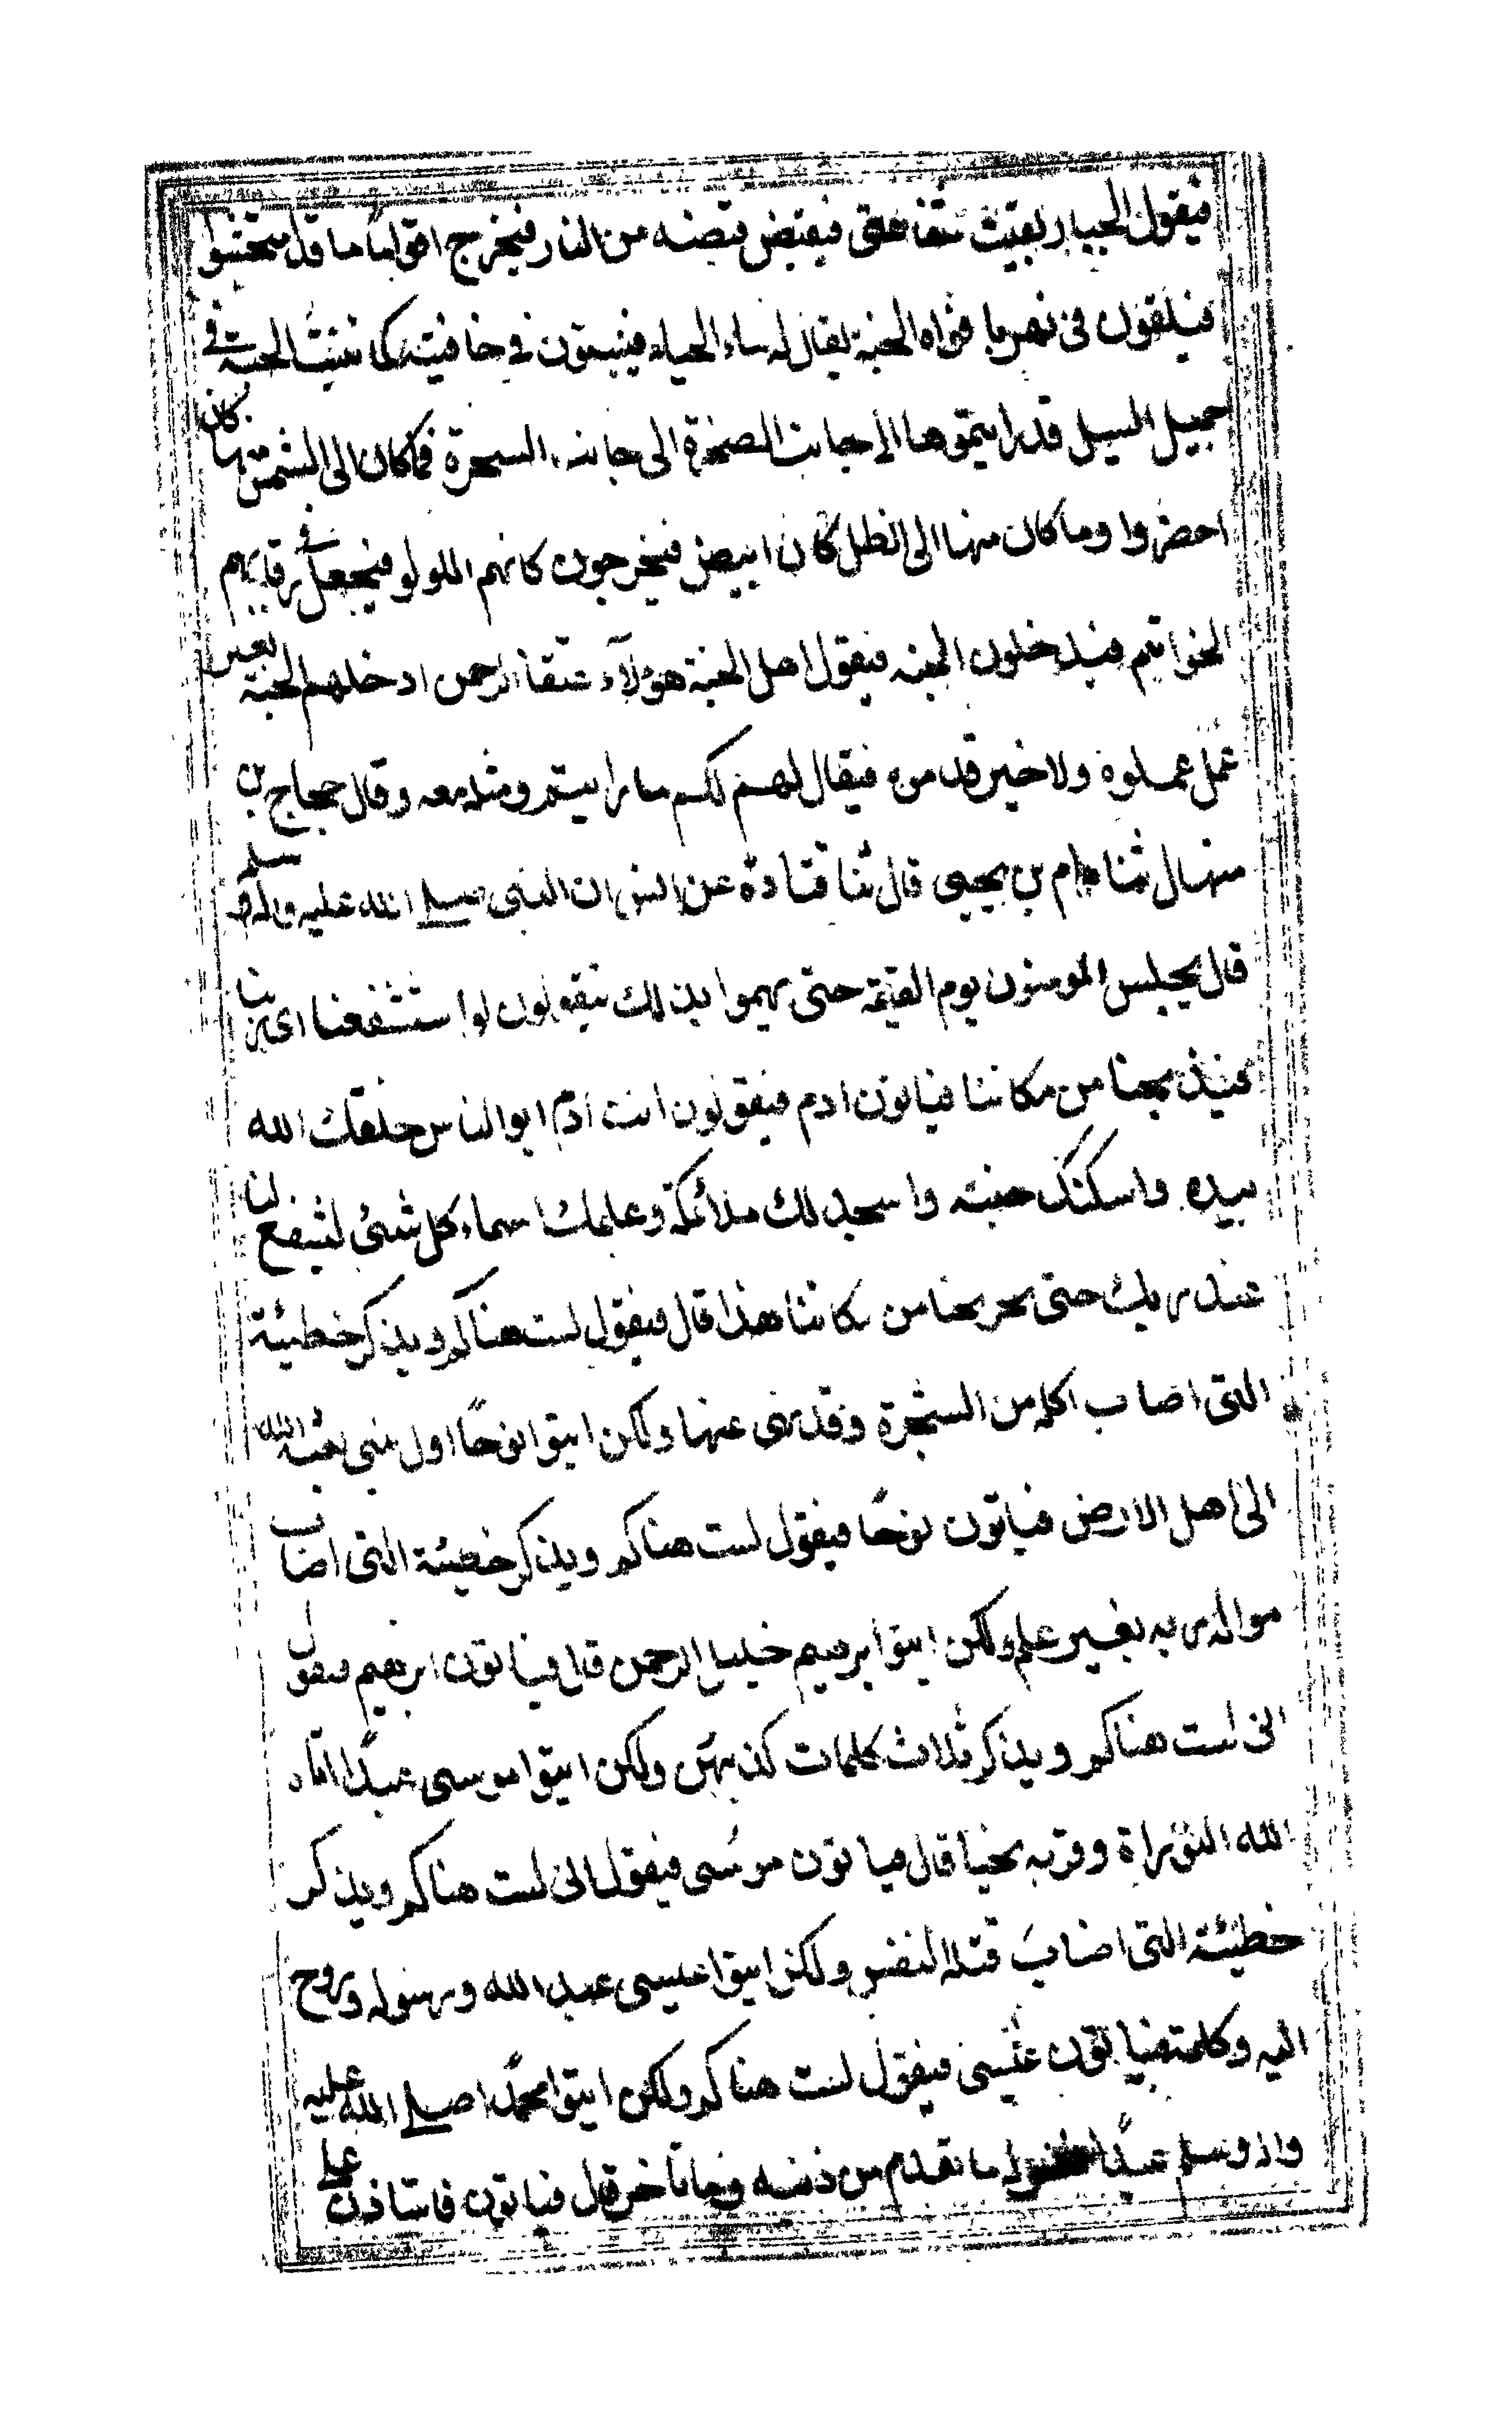 فيقول الجبار بقيت شفاعتى فيقبض قبضه من النار فيخرج اقواما ما قد امتحشوا
فيلقون فى نهر با فواه الجنة يقال له ماء الحياه فينبتون فى حافيته كما تنبت الحبة فى
حميل السيل قد رايتموها الى جانب الصخرة الى جانب السجرة فما كان الى الشمس منها كان
اخضروا وما كان منها الى الظل كان ابيض فيخرجون كانهم اللولو فيجعل فى رقابهم
الخواتيم فيدخلون الجنه فيقول اهل الجنة هؤلآء عتقا الرحمن ادخلهم الجنة بغير
عمل عملوه ولا خير قدموه فيقال لهم لكم ما رايتم ومثله معه وقال حجاج بن
منهال ثنا همام بن يحيى قال ثنا قتادة عن انس ان النبى صلى الله عليه واله وسلم
قال يحبس المومنون يوم القيمة حتى يهموا بذلك فيقولون لوا ستشفعنا الى ربنا
فيذ يحنا من مكاننا فياتون ادم فيقولون انت ادم ابوالناس خلقك الله
بيده واسكنك جنته واسجد لك ملائكة وعلمك اسماء كل شئى لتشفع لنا
عند ربك حتى يريحنا من مكاننا هذا قال فيقول لست هناكم ويذكر خطيئة
التى اصاب اكله من الشجرة وقد نهى عنها ولكن ايتوا نوحًا اول نبى بعثه الله
الى اهل الارض فياتون نوحًا فيقول لست هناكم ويذكر خطيئة التى اصاب
سواله ربه بغير علم ولكن ايتوا برهيم خليل الرحمن قال فياتون ابرهيم فيقول
انى لست هناكم ويذكر ثلاث كلمات كذبهن ولكن ايتوا موسى عبدًا اتاه
الله التوراة وقربه نجيا قال فياتون موسى فيقول انى لست هناكم ويذكر
خطيئة التى اصاب قتله النفس ولكن ايتوا عيسى عبد الله ورسوله وروح
اليه وكلمته فياتون عيسى فيقول لست هناكم ولكن ايتوا محمدًا صلى الله عليه
واله وسلم عبدًا غفر له ما تقدم من ذنبه وما تاخر قال فياتون فاستاذن على